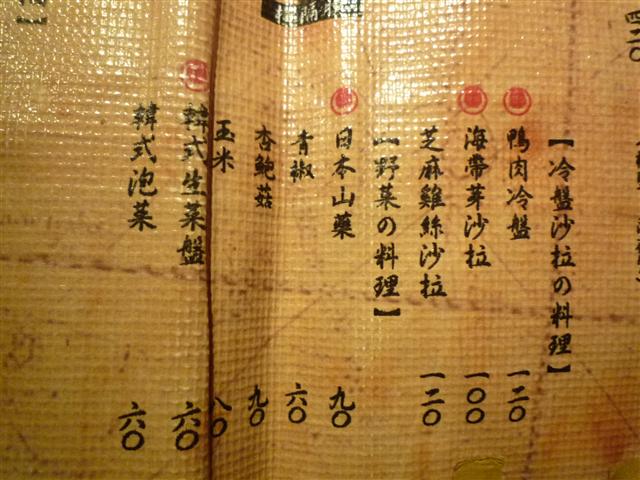 【冷盤沙拉の料理】
鴨肉冷盤 一二〇
海帶芽沙拉 一〇〇
芝麻雞絲沙拉 一二〇
【野菜の料理】
日本山藥 九〇
青椒 六〇
杏鮑菇 九〇
玉米 八〇
韓式生菜盤 六〇
韓式泡菜 六〇